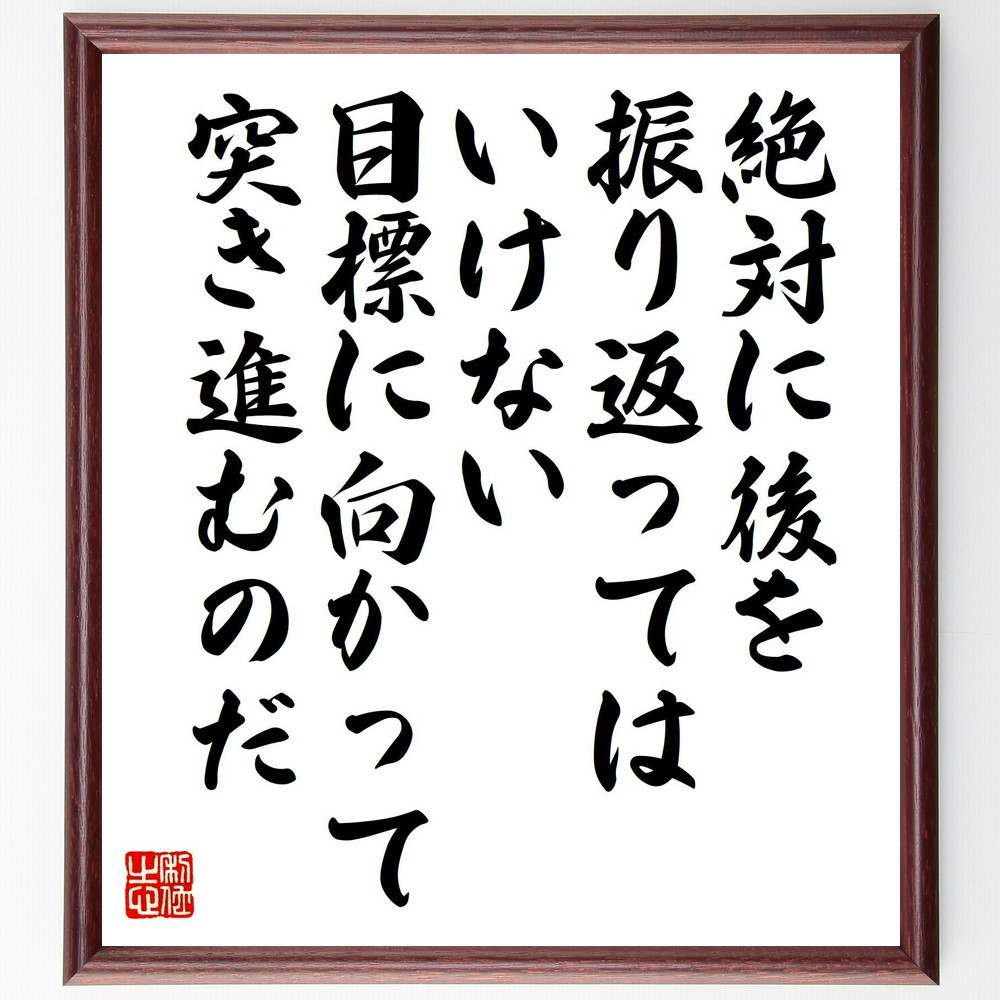 絶対に後を
振り返っては
いけない
目標に向かって
突き進むのだ